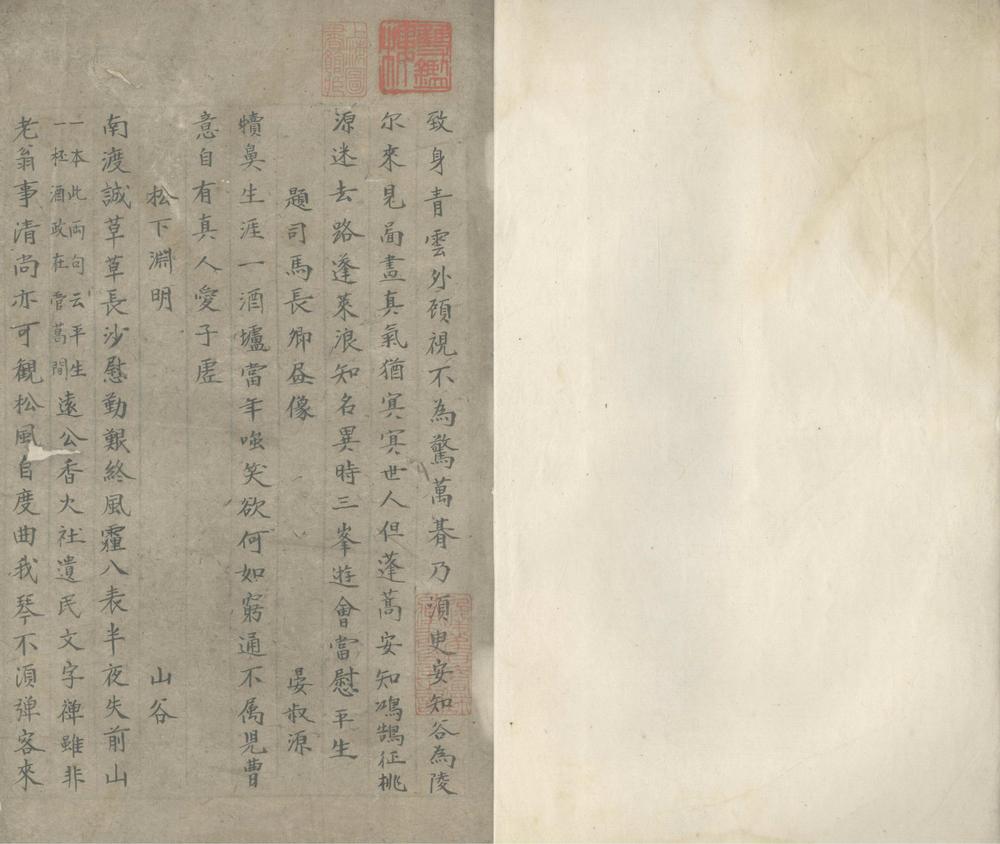 致身青雲外頋視不為驚萬朞乃湏臾安知谷為陵
尔來見畐畫真氣猶㝠㝠世人但蓬蒿安知鴻鵠征桃
源迷去路蓬萊浪知名異時三峯逰會當慰平生
題司馬長卿昼像 晏叔源
犢鼻生涯一酒壚當年嗤笑欲何如窮通不属児曹
意自有真人愛子虗
松下淵明 山谷
南渡誠草草長沙慰勤艱終風霾八表半夜失前山
一本此兩句云平生
一杯酒政在菅葛間
遠公香火社遺民文字禅雖非
老翁事清尚亦可觀松風自度曲我琴不湏弹客來